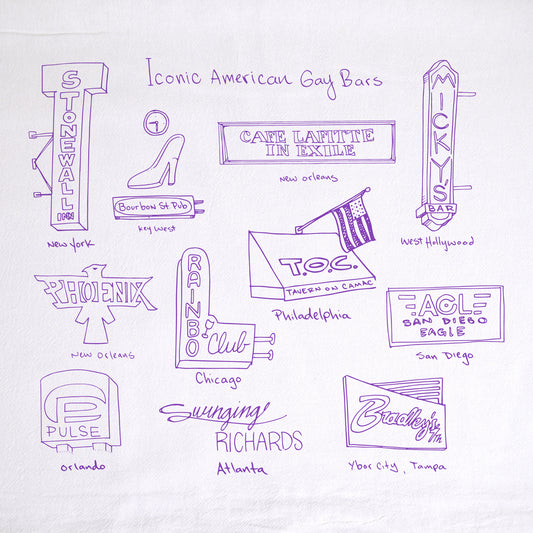 Iconic American Gay Bars
STONEWALL
INN
New York
Bourbon St. Pub
Key West
CAFE LAFITTE
IN EXILE
New Orleans
MICKY'S
BAR
West Hollywood
PHOENIX
New Orleans
RAINBO
Club
Chicago
T.O.C.
TAVERN ON CAMAC
Philadelphia
AGL
SAN DIEGO
EAGLE
San Diego
PULSE
Orlando
Swinging
RICHARDS
Atlanta
Bradley's
Ybor City, Tampa